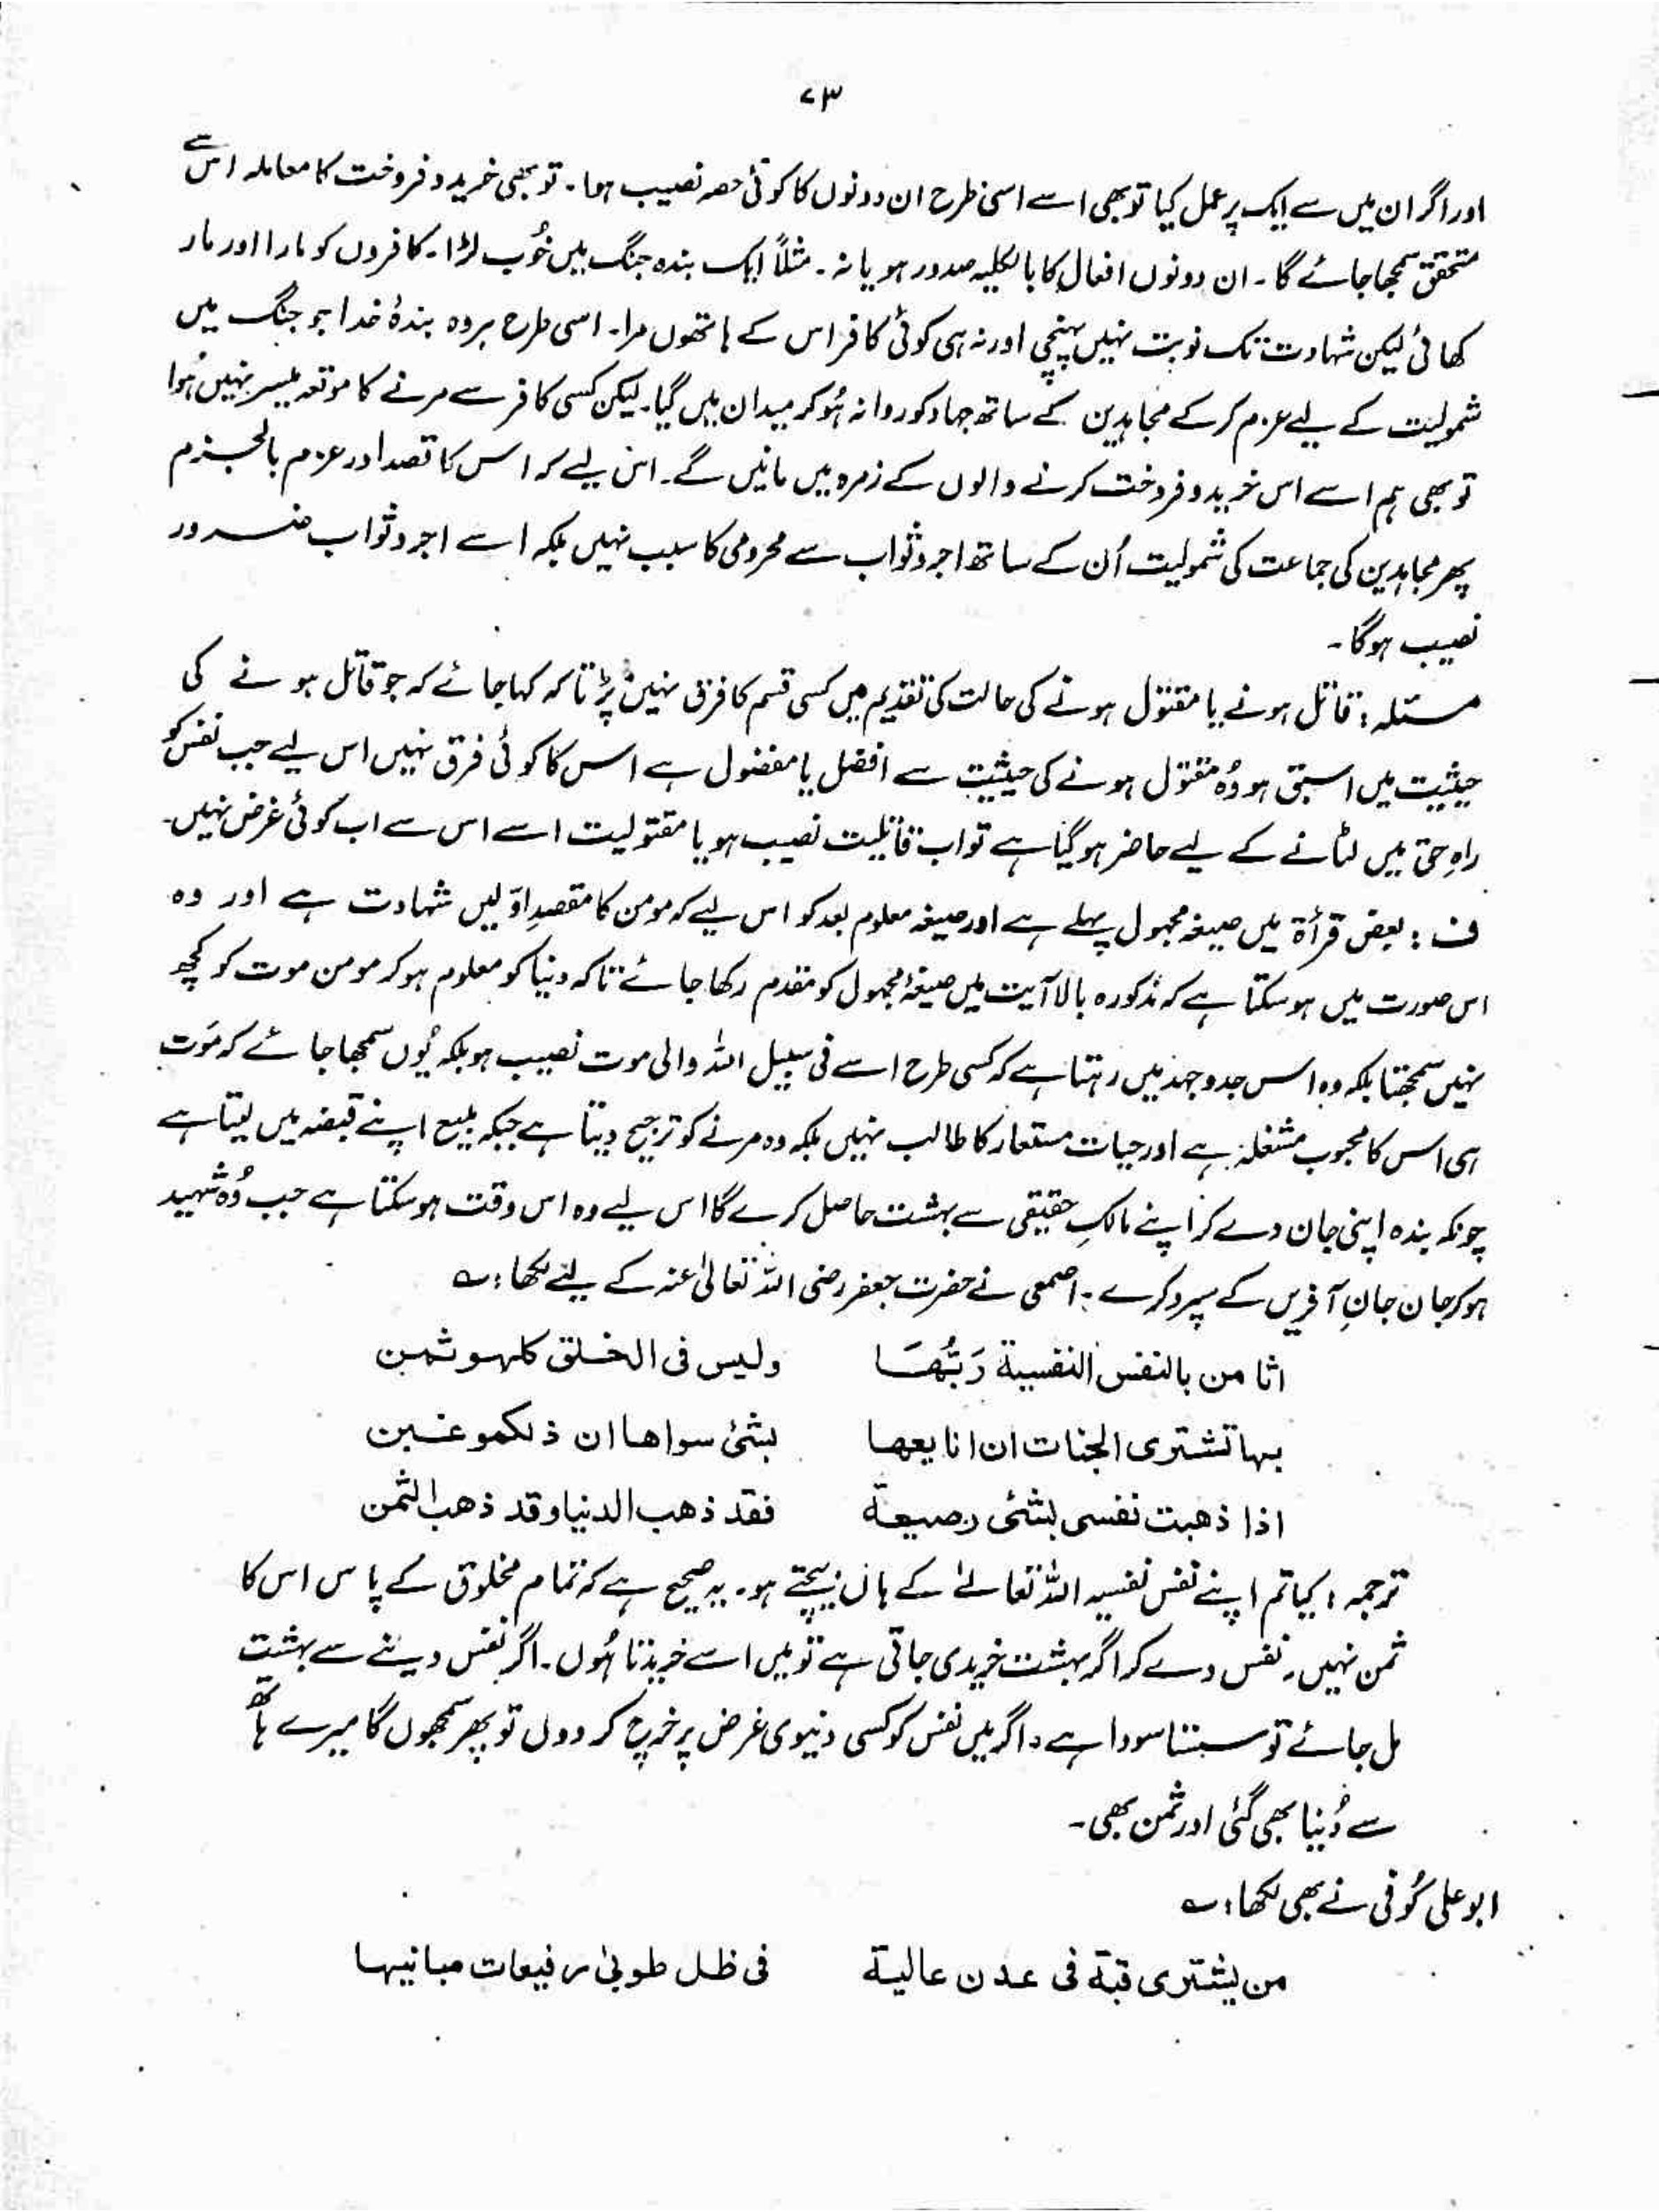 ۷۳
اور اگر ان میں سے ایک پر عمل کیا تو بھی اسے اسی طرح ان دونوں کا کوئی حصہ نصیب ہوا۔ تو بھی خرید و فروخت کا معاملہ اس سے
متحقق سمجھا جائے گا۔ ان دونوں افعال کا بالکلیہ صدور ہو یا نہ۔ مثلاً ایک بندہ جنگ میں خُوب لڑا۔ کافروں کو مارا اور مار
کھائی لیکن شہادت تک نوبت نہیں پہنچی اور نہ ہی کوئی کافر اس کے ہاتھوں مرا۔ اسی طرح ہر وہ بندۂ خدا جو جنگ میں
شمولیت کے لیے عزم کر کے مجاہدین کے ساتھ جہاد کو روانہ ہُو کر میدان میں گیا۔ لیکن کسی کافر سے مرنے کا موقعہ میسر نہیں ہُوا
تو بھی ہم اسے اس خرید و فروخت کرنے والوں کے زمرہ میں مانیں گے۔ اس لیے کہ اس کا قصد اور عزم بالجزم
پھر مجاہدین کی جماعت کی شمولیت اُن کے ساتھ اجر و ثواب سے محرومی کا سبب نہیں بلکہ اسے اجر و ثواب ضرور
نصیب ہوگا۔
مسئلہ: قاتل ہونے یا مقتول ہونے کی حالت کی تقدیم میں کسی قسم کا فرق نہیں پڑتا کہ کہا جائے کہ جو قاتل ہونے کی
حیثیت میں اسبق ہو وُہ مقتول ہونے کی حیثیت سے افضل یا مفضول ہے اس کا کوئی فرق نہیں اس لیے جب نفس کو
راہِ حق میں لٹانے کے لیے حاضر ہو گیا ہے تو اب قاتلیت نصیب ہو یا مقتولیت اسے اس سے اب کوئی غرض نہیں۔
ف: بعض قرأۃ میں صیغہ مجہول پہلے ہے اور صیغہ معلوم بعد کو اس لیے کہ مومن کا مقصدِ اوّلیں شہادت ہے اور وہ
اس صورت میں ہو سکتا ہے کہ مذکورہ بالا آیت میں صیغۂ مجہول کو مقدم رکھا جائے تاکہ دنیا کو معلوم ہو کہ مومن موت کو کچھ
نہیں سمجھتا بلکہ وہ اس جدوجہد میں رہتا ہے کہ کسی طرح اسے فی سبیل اللہ والی موت نصیب ہو بلکہ یُوں سمجھا جائے کہ مَوت
ہی اس کا محبوب مشغلہ ہے اور حیات مستعار کا طالب نہیں بلکہ وہ مرنے کو ترجیح دیتا ہے جبکہ مبیع اپنے قبضہ میں لیتا ہے
چونکہ بندہ اپنی جان دے کر اپنے مالکِ حقیقی سے بہشت حاصل کرے گا اس لیے وہ اس وقت ہو سکتا ہے جب وُہ شہید
ہو کر جان جانِ آفریں کے سپرد کرے۔ اصمعی نے حضرت جعفر رضی اللہ تعالیٰ عنہ کے لیے لکھا: ؎
اثامن بالنفس النفسیة رَبُّهَا ولیس فی الخلق کلهو ثمن
بها تشتری الجنات ان انا یعها بشئ سواها ان ذلکمو غبن
اذا ذهبت نفسی بشئی رصیعة فقد ذهب الدنیا وقد ذهب الثمن
ترجمہ: کیا تم اپنے نفس نفیسہ اللہ تعالےٰ کے ہاں بیچتے ہو۔ یہ صحیح ہے کہ تمام مخلوق کے پاس اس کا
ثمن نہیں۔ نفس دے کر اگر بہشت خریدی جاتی ہے تو میں اسے خریدتا ہُوں۔ اگر نفس دینے سے بہشت
مل جائے تو سستا سودا ہے۔ اگر میں نفس کو کسی دنیوی غرض پر خرچ کر دوں تو پھر سمجھوں گا میرے ہاتھ
سے دُنیا بھی گئی اور ثمن بھی۔
ابو علی کُوفی نے بھی لکھا: ؎
من یشتری قبة فی عدن عالیة فی ظل طوبیٰ رفیعات مبانیها